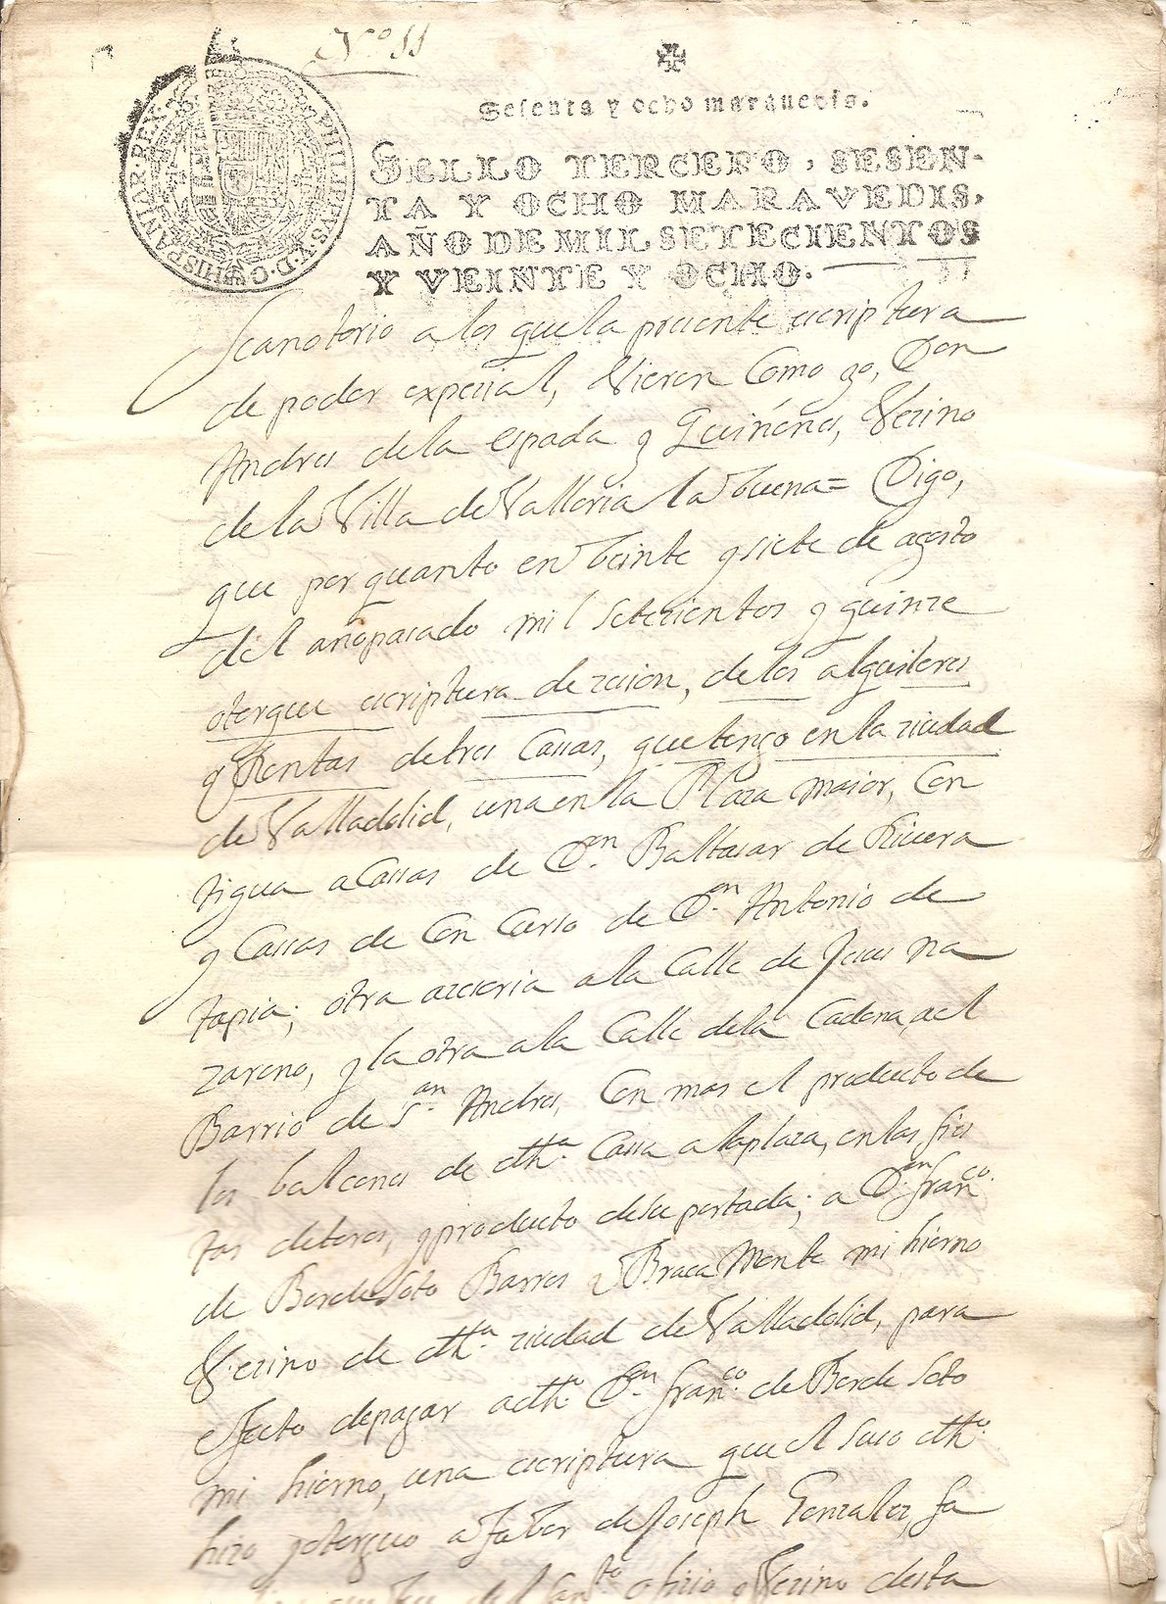 Nº 11
Sesenta y ocho marauedis.
PHILIPPVS·V·D·G·HISPANIAR·REX·
SELLO TERCERO, SESEN-
TA Y OCHO MARAVEDIS,
AÑO DE MIL SETECIENTOS
Y VEINTE Y OCHO.
Sea notorio a los que la presente escriptura
de poder expezial, Vieren Como yo, Don
Andres de la espada y Quiñones, Vezino
de la Villa de Valloria la buena = Digo,
que por quanto en beinte y siete de agosto
del año pasado mil setezientos y quinze
otorgue escriptura de zesion, de los alquileres
y Rentas de tres Cassas, que tengo en la ziudad
de Valladolid, una en la Plaza maior, Con
tigua a Cassas de Dⁿ. Baltasar de Riuera
y Cassas de Con Curso de Dⁿ. Antonio de
tapia; otra azesoria a la Calle de Jesus na
zareno, y la otra a la Calle de la Cadena, al
Barrio de Sⁿ. Andres, Con mas el producto de
los balcones de dhª. Cassa a la plaza, en las fies
tas de toros, y producto de su portada; a Dⁿ. franᶜᵒ.
de Berde Soto Barros y Braca Monte mi hierno
Vezino de dhª. ziudad de Valladolid, para
efecto de pagar a dhº. Dⁿ. franᶜᵒ. de Berde Soto
mi hierno, una escriptura que el suso dhº.
hizo y otorguo a fabor de Joseph Gonzalez, fa
ofizio Vezino desta